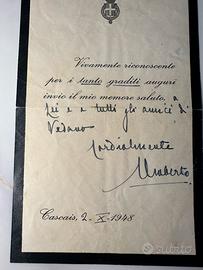 Vivamente riconoscente
per i tanto graditi auguri
invio il mio memore saluto, a
Lei e a tutti gli amici di
Vedano
Cordialmente
Umberto
Cascais, 2-X-1948
subito